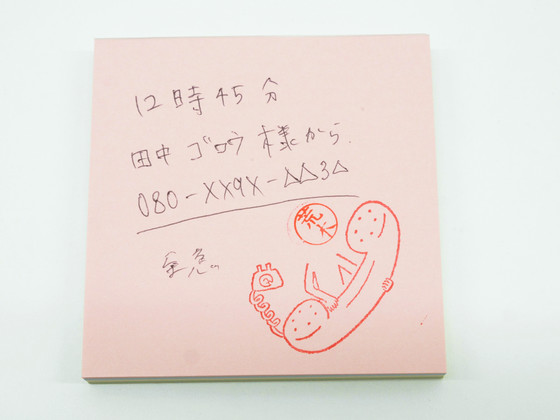 12時45分
田中 ゴロウ 様から.
080-XX9X-△△3△
荒木
至急